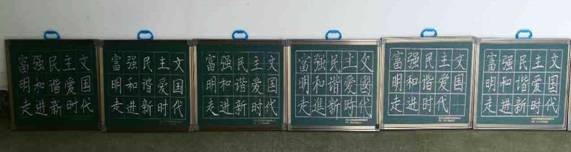 富强民主文
明和谐爱国
走进新时代
富强民主文
明和谐爱国
走进新时代
富强民主文
明和谐爱国
走进新时代
富强民主文
明和谐爱国
走进新时代
富强民主文
明和谐爱国
走进时代
富强民主文
明和谐爱国
走进新时代